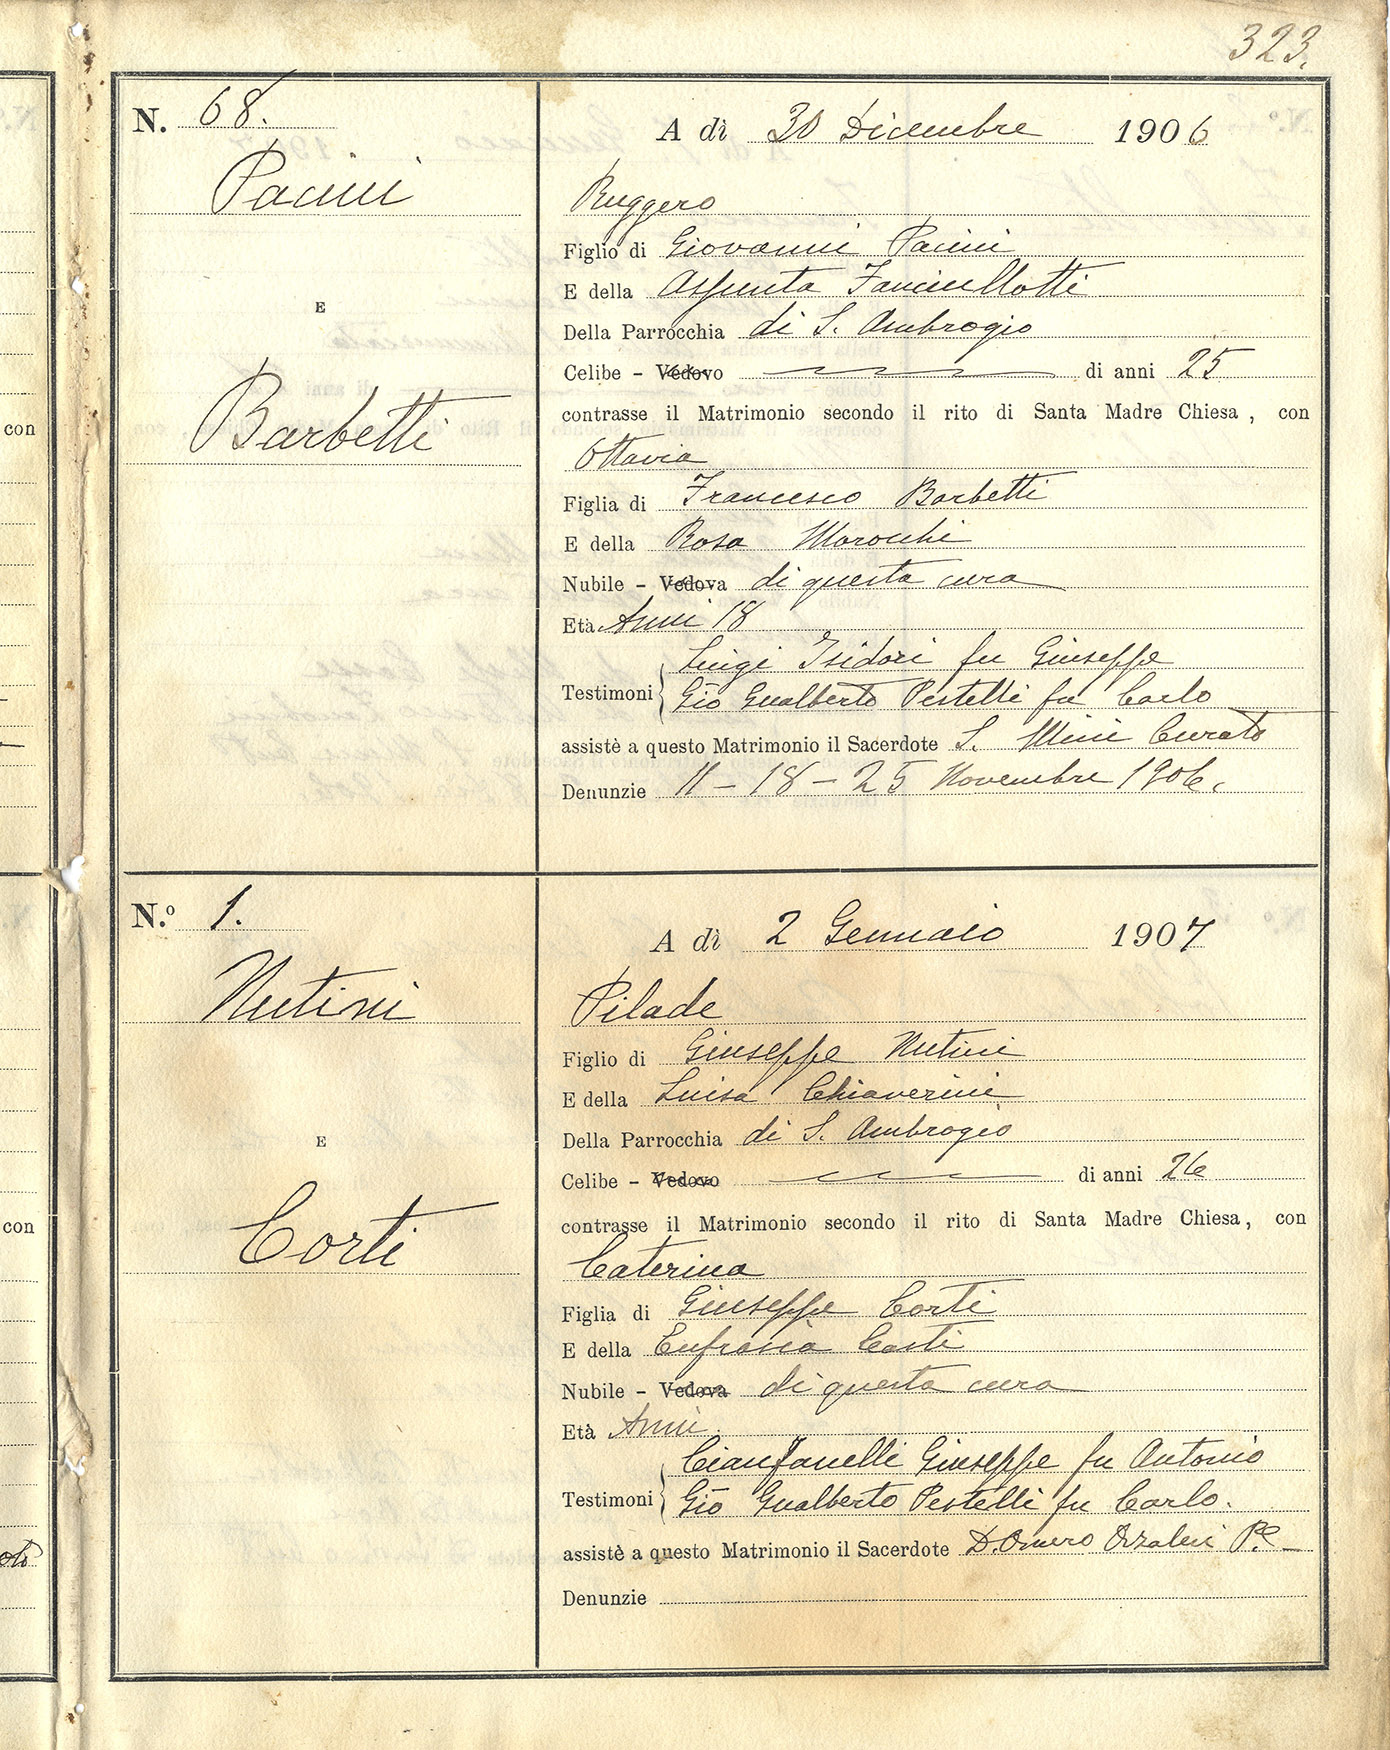 323.
N. 68.
Pacini
E
Barbetti
A dì 30 Dicembre 1906
Ruggero
Figlio di Giovanni Pacini
E della Assunta Fanciullotti
Della Parrocchia di S. Ambrogio
Celibe - Vedovo di anni 25
contrasse il Matrimonio secondo il rito di Santa Madre Chiesa, con
Ottavia
Figlia di Francesco Barbetti
E della Rosa Marocchi
Nubile - Vedova di questa cura
Età Anni 18
Luigi Isidori fu Giuseppe
Testimoni
Gio Gualberto Pestelli fu Carlo
assistè a questo Matrimonio il Sacerdote S. Mini Curato
Denunzie 11 - 18 - 25 Novembre 1906.
N.o 1.
Nutini
E
Corti
A dì 2 Gennaio 1907
Pilade
Figlio di Giuseppe Nutini
E della Luisa Chiaverini
Della Parrocchia di S. Ambrogio
Celibe - Vedovo di anni 26
contrasse il Matrimonio secondo il rito di Santa Madre Chiesa, con
Caterina
Figlia di Giuseppe Corti
E della Eufrasia Casti
Nubile - Vedova di questa cura
Età Anni
Cianfanelli Giuseppe fu Antonio
Testimoni
Gio Gualberto Pestelli fu Carlo.
assistè a questo Matrimonio il Sacerdote D. Omero Orzalesi P.e
Denunzie
con
con